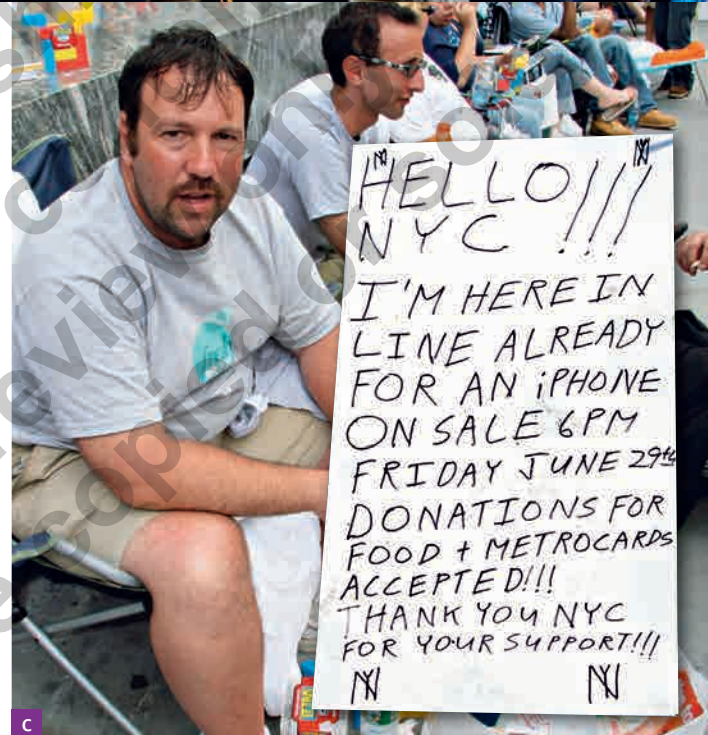 HELLO!!!
NYC !!!
I'M HERE IN
LINE ALREADY
FOR AN iPHONE
ON SALE 6PM
FRIDAY JUNE 29th
DONATIONS FOR
FOOD + METROCARDS
ACCEPTED!!!
THANK YOU NYC
FOR YOUR SUPPORT!!!
NY NY
C